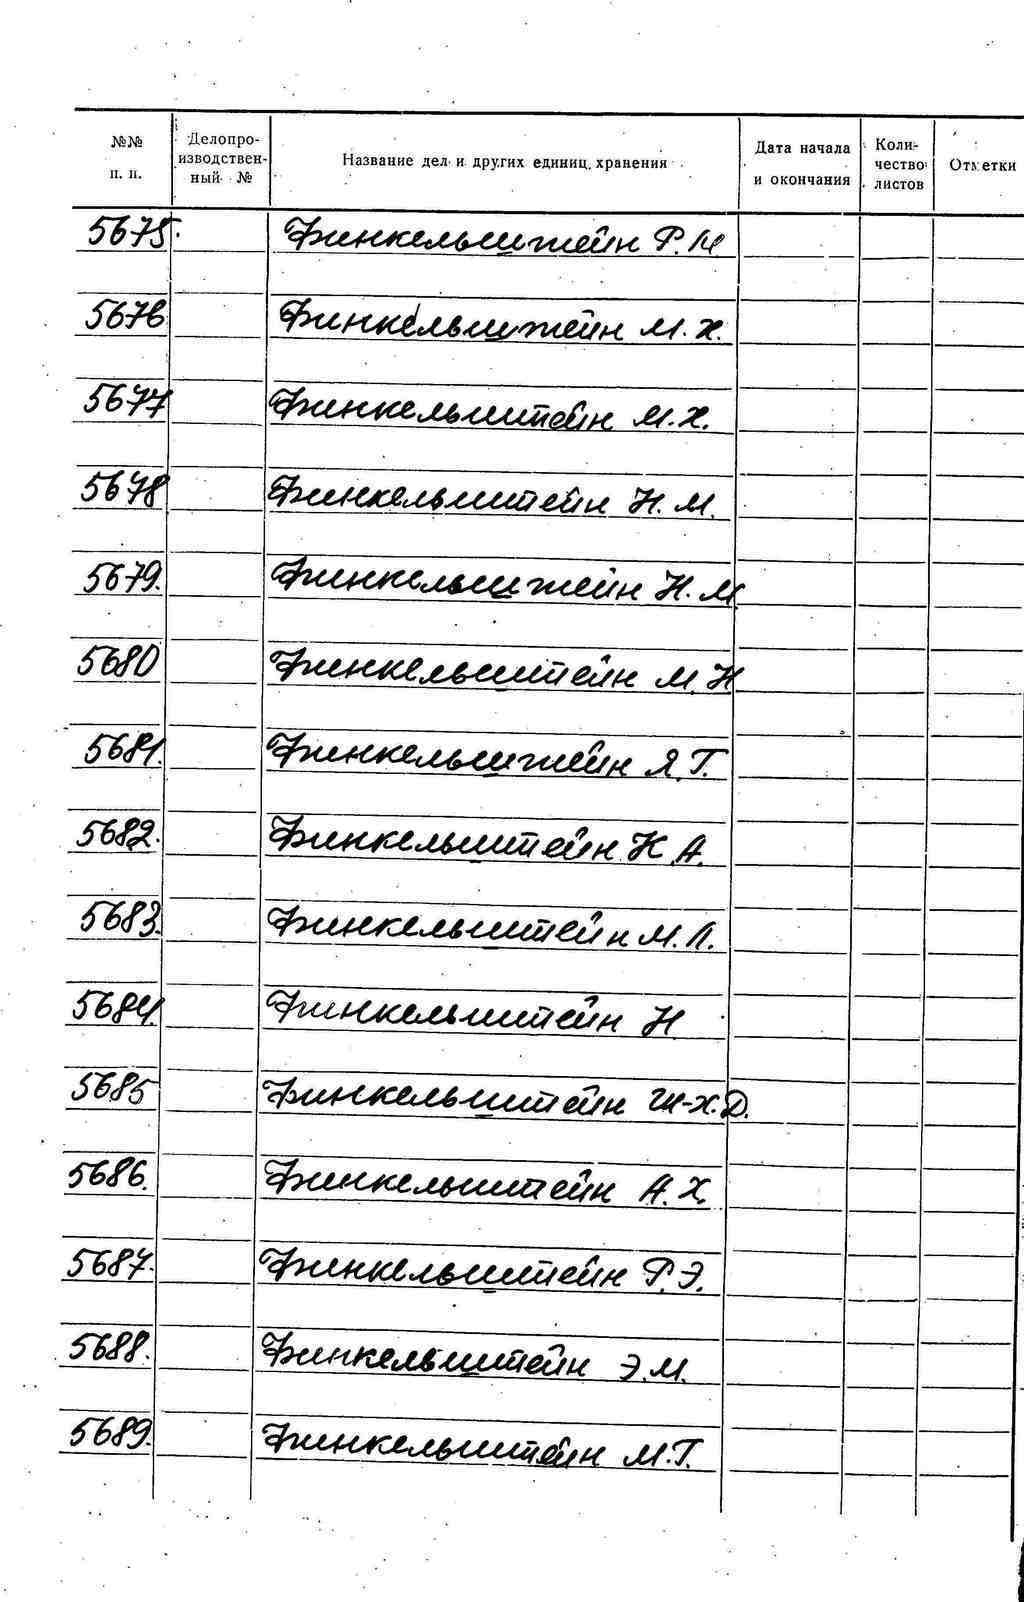 №№ п. п. Делопроизводственный № Название дел и других единиц хранения Дата начала и окончания Количество листов Отметки
5675. Финкельштейн Р. М
5676 Финкельштейн М. Х.
5677 Финкельштейн М. Х.
5678 Финкельштейн Н. М.
5679. Финкельштейн Н. М
5680 Финкельштейн М. Н
5681. Финкельштейн Я. Г.
5682. Финкельштейн К. А.
5683. Финкельштейн М. Л.
5684. Финкельштейн Н
5685 Финкельштейн Ш-Х. Д.
5686. Финкельштейн А. Х.
5687. Финкельштейн Р. Э.
5688. Финкельштейн Э. М.
5689. Финкельштейн М. Г.